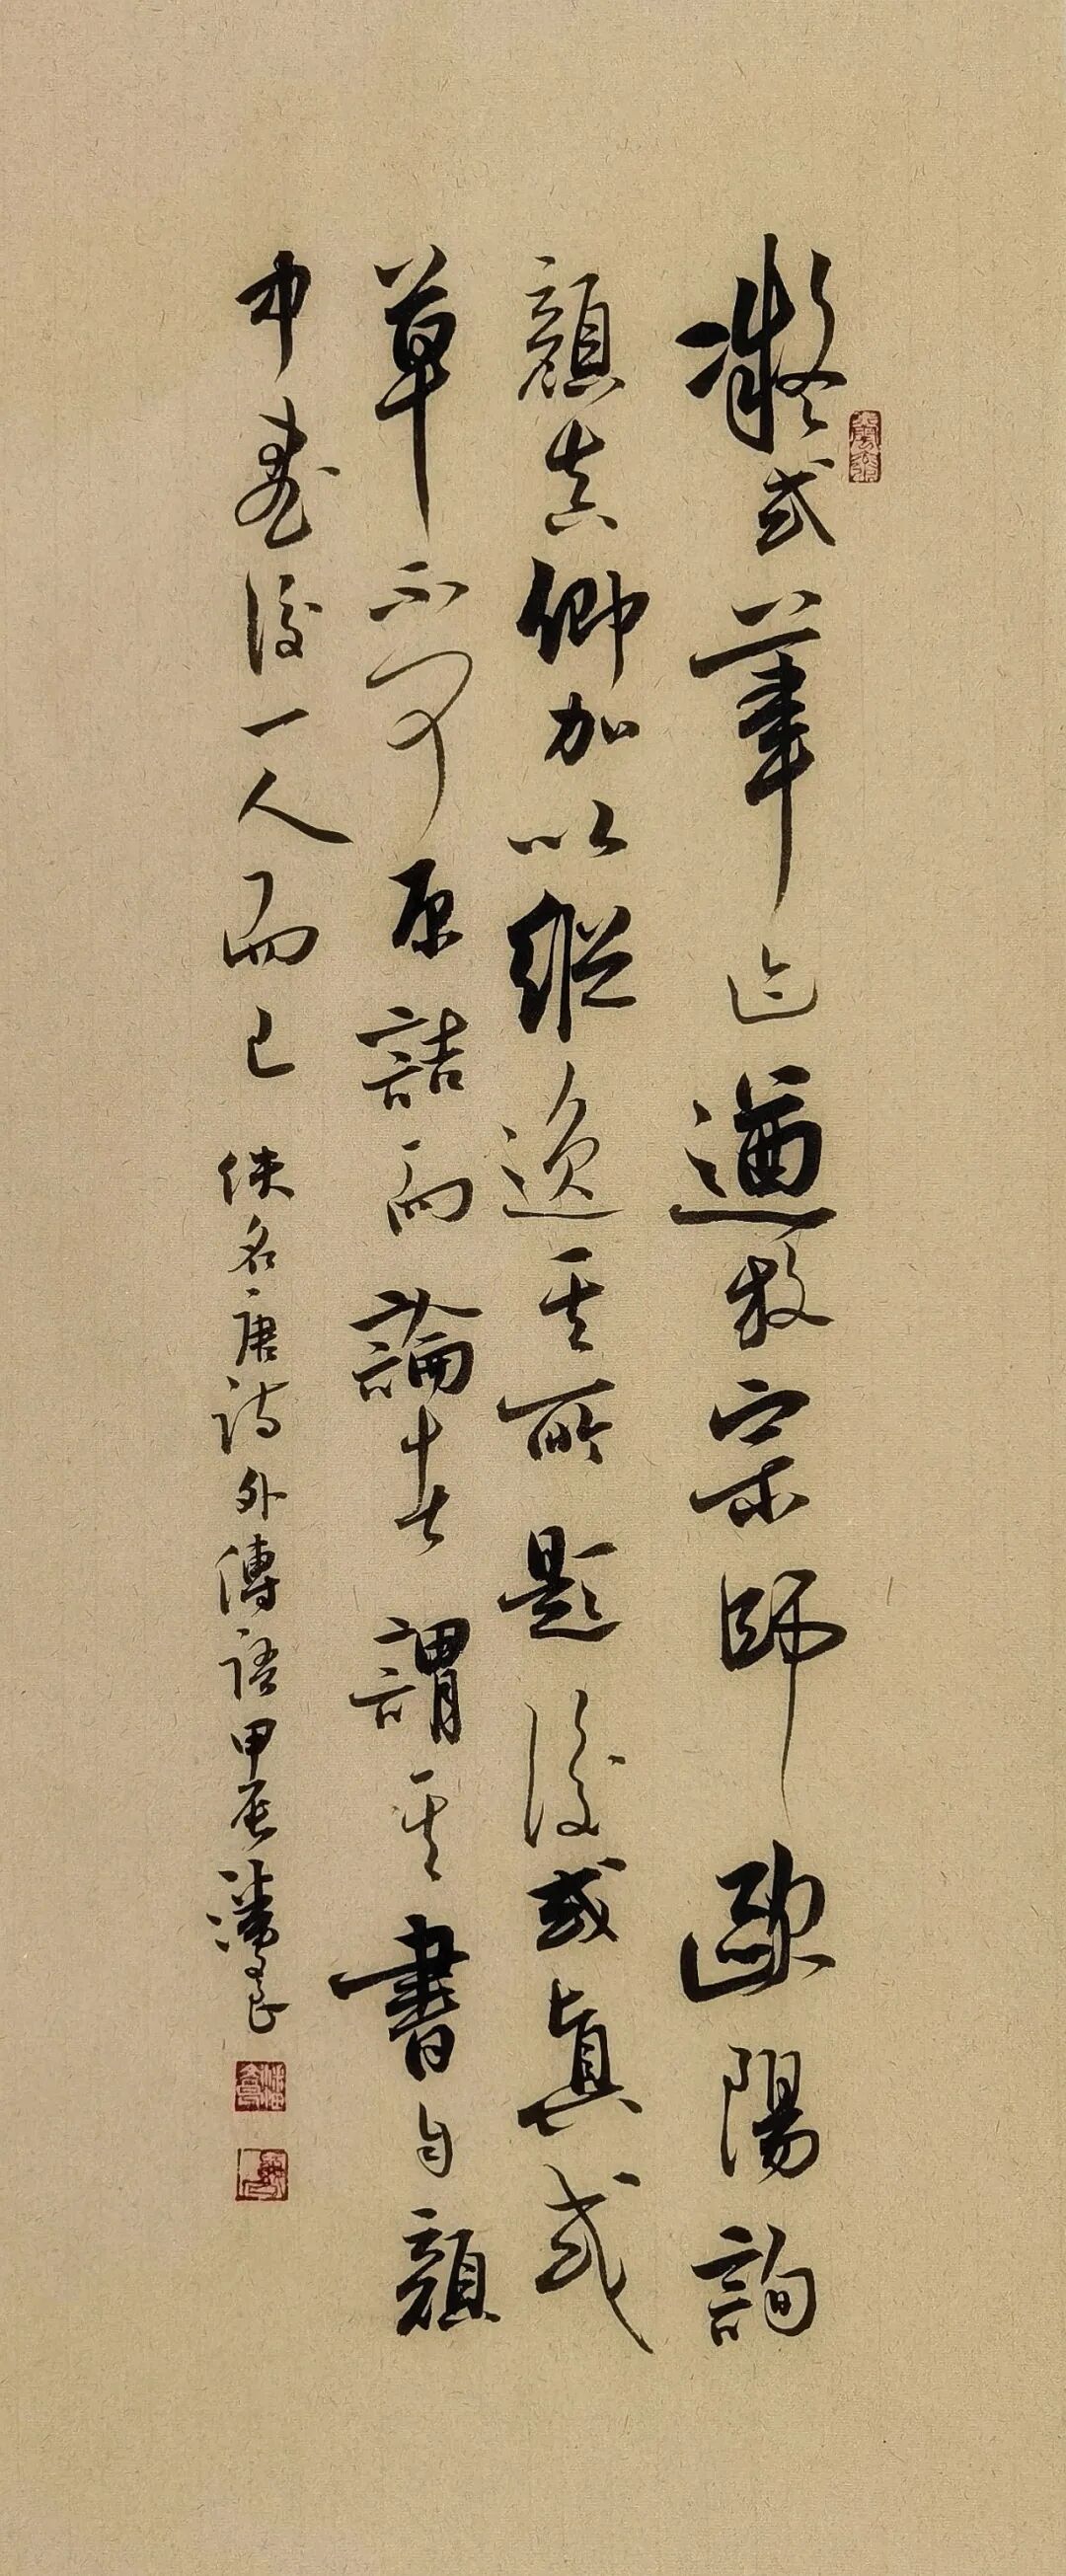 凝式筆迹遒放宗師歐陽詢
顏真卿加以縱逸其所題後或真或
草不可原詰而論者謂其書自顏
中書後一人而已 佚名唐詩外傳語甲辰潘良